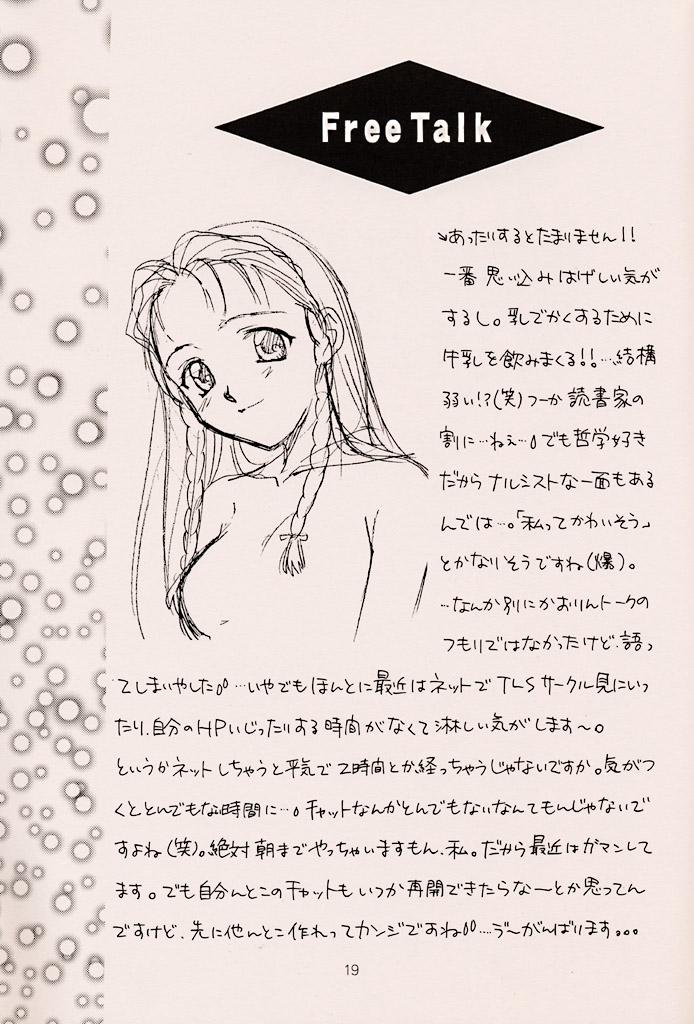 Free Talk
↘あったりするとたまりません!!
一番思い込みはげしい気が
するし。乳でかくするために
牛乳を飲みまくる!!…結構
弱い!?(笑)つーか読書家の
割に…ねぇ…。でも哲学好き
だからナルシストな一面もある
んでは…。「私ってかわいそう」
とかないそうですね(爆)。
…なんか別にかおりんトークの
つもりではなかったけど、語っ
てしまいやした。…いやでもほんとに最近はネットでTLSサークル見にいっ
たり、自分のHPいじったりする時間がなくて淋しい気がします〜。
というかネットしちゃうと平気で2時間とか経っちゃうじゃないですか。気がつ
くととんでもない時間に…。チャットなんかとんでもないなんてもんじゃないで
すよね(笑)。絶対朝までやっちゃいますもん、私。だから最近はガマンして
ます。でも自分んとこのチャットもいつか再開できたらな〜とか思ってん
ですけど、先に他んとこ作れってカンジですね…ゔ〜がんばります。。。
19